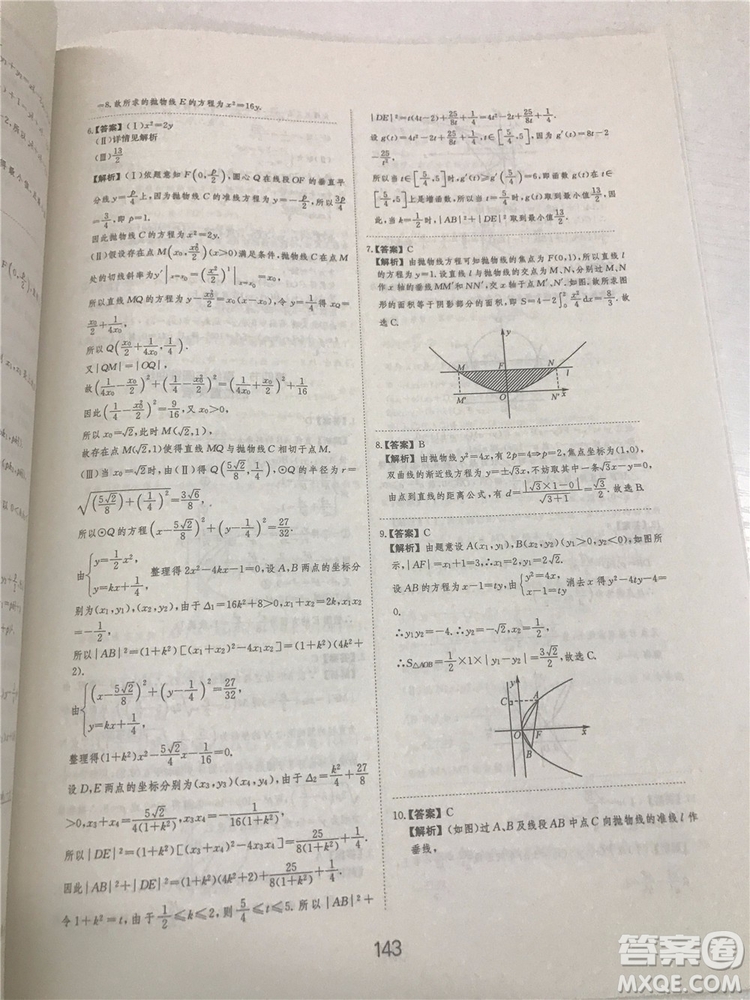 =8.故所求的抛物线E的方程为x²=16y.
6.【答案】(Ⅰ)x²=2y
(Ⅱ)详情见解析
(Ⅲ)13/2
【解析】(Ⅰ)依题意知F(0,p/2),圆心Q在线段OF的垂直平
分线y=p/4上,因为抛物线C的准线方程为y=-p/2,所以3p/4
=3/4,即p=1.
因此抛物线C的方程为x²=2y.
(Ⅱ)假设存在点M(x₀,x₀²/2)(x>0)满足条件,抛物线C在点M
处的切线斜率为y′|x=x₀=(x²/2)′|x=x₀=x₀,
所以直线MQ的方程为y-x₀²/2=x₀(x-x₀),令y=1/4得xQ=
x₀/2+1/4x₀,
所以Q(x₀/2+1/4x₀,1/4).
又|QM|=|OQ|,
故(1/4x₀-x₀/2)²+(1/4-x₀²/2)²=(1/4x₀+x₀/2)²+1/16
因此(1/4-x₀²/2)²=9/16,又x₀>0
所以x₀=√2,此时M(√2,1).
故存在点M(√2,1)使得直线MQ与抛物线C相切与点M.
(Ⅲ)当x₀=√2时,由(Ⅱ)得Q(5√2/8,1/4),⊙Q的半径为r=
√((5√2/8)²+(1/4)²)=3√6/8.
所以⊙Q的方程(x-5√2/8)²+(y-1/4)²=27/32.
由{y=1/2x², y=kx+1/4, 整理得2x²-4kx-1=0.设A、B两点的坐标分
别为(x₁,y₁),(x₂,y₂),由于Δ₁=16k²+8>0,x₁+x₂=2k,x₁x₂
=-1/2,
所以|AB|²=(1+k²)[(x₁+x₂)²-4x₁x₂]=(1+k²)(4k²+
2).
由{(x-5√2/8)²+(y-1/4)²=27/32, y=kx+1/4,
整理得(1+k²)x²-5√2/4x-1/16=0.
设D、E两点的坐标分别为(x₃,y₃)(x₄,y₄),由于Δ₂=k²/4+27/8
>0,x₃+x₄=5√2/4(1+k²),x₃x₄=-1/16(1+k²),
所以|DE|²=(1+k²)[(x₃+x₄)²-4x₃x₄]=25/8(1+k²)+1/4.
因此|AB|²+|DE|²=(1+k²)(4k²+2)+25/8(1+k²)+1/4.
令1+k²=t,由于1/2≤k≤2,则5/4≤t≤5.所以|AB|²+
|DE|²=t(4t-2)+25/8t+1/4=4t²-2t+25/8t+1/4.
设g(t)=4t²-2t+25/8t+1/4,t∈[5/4,5],因为g′(t)=8t-2
-25/8t²,
所以当t∈[5/4,5]时,g′(t)≥g′(5/4)=6>0,
即当t∈[5/4,5]时,g(t)为增函数,所以当t=5/4时,g(t)取到最小值13/2.因
此,当k=1/2时,|AB|²+|DE|²取到最小值13/2.
7.【答案】C
【解析】由抛物线方程可知抛物线的焦点为F(0,1),所以直线l
的方程为y=1.设直线l与抛物线的交点为M、N,分别过M,N
作x轴的垂线MM′和NN′,交x轴于点M′,N′,如图.故所求图
形的面积等于阴影部分的面积,即S=4-2∫₀²x²/4dx=8/3.故
选C.
y
M F N l
M′ O N′ x
8.【答案】B
【解析】由抛物线y²=4x,有2p=4,p=2,焦点坐标为(1,0),
双曲线的渐近线方程为y=±√3x,不妨取其中一条√3x-y=0,
由点到直线的距离公式,有d=|√3×1-0|/√3+1=√3/2.故选B.
9.【答案】C
【解析】由题意设A(x₁,y₁),B(x₂,y₂)(y₁>0,y₂<0),如图所
示,|AF|=x₁+1=3,∴x₁=2,y₁=2√2.
设AB的方程为x-1=ty,由{y²=4x, x-1=ty 消去x得y²-4ty-4=
0.
∴y₁y₂=-4,∴y₂=-√2,x₂=1/2,
∴S△AOB=1/2×1×|y₁-y₂|=3√2/2,故选C.
y
C A
O F x
B
10.【答案】C
【解析】(如图)过A、B及线段AB中点C向抛物线的准线l作
垂线,
143
答案圈
MXQE.COM